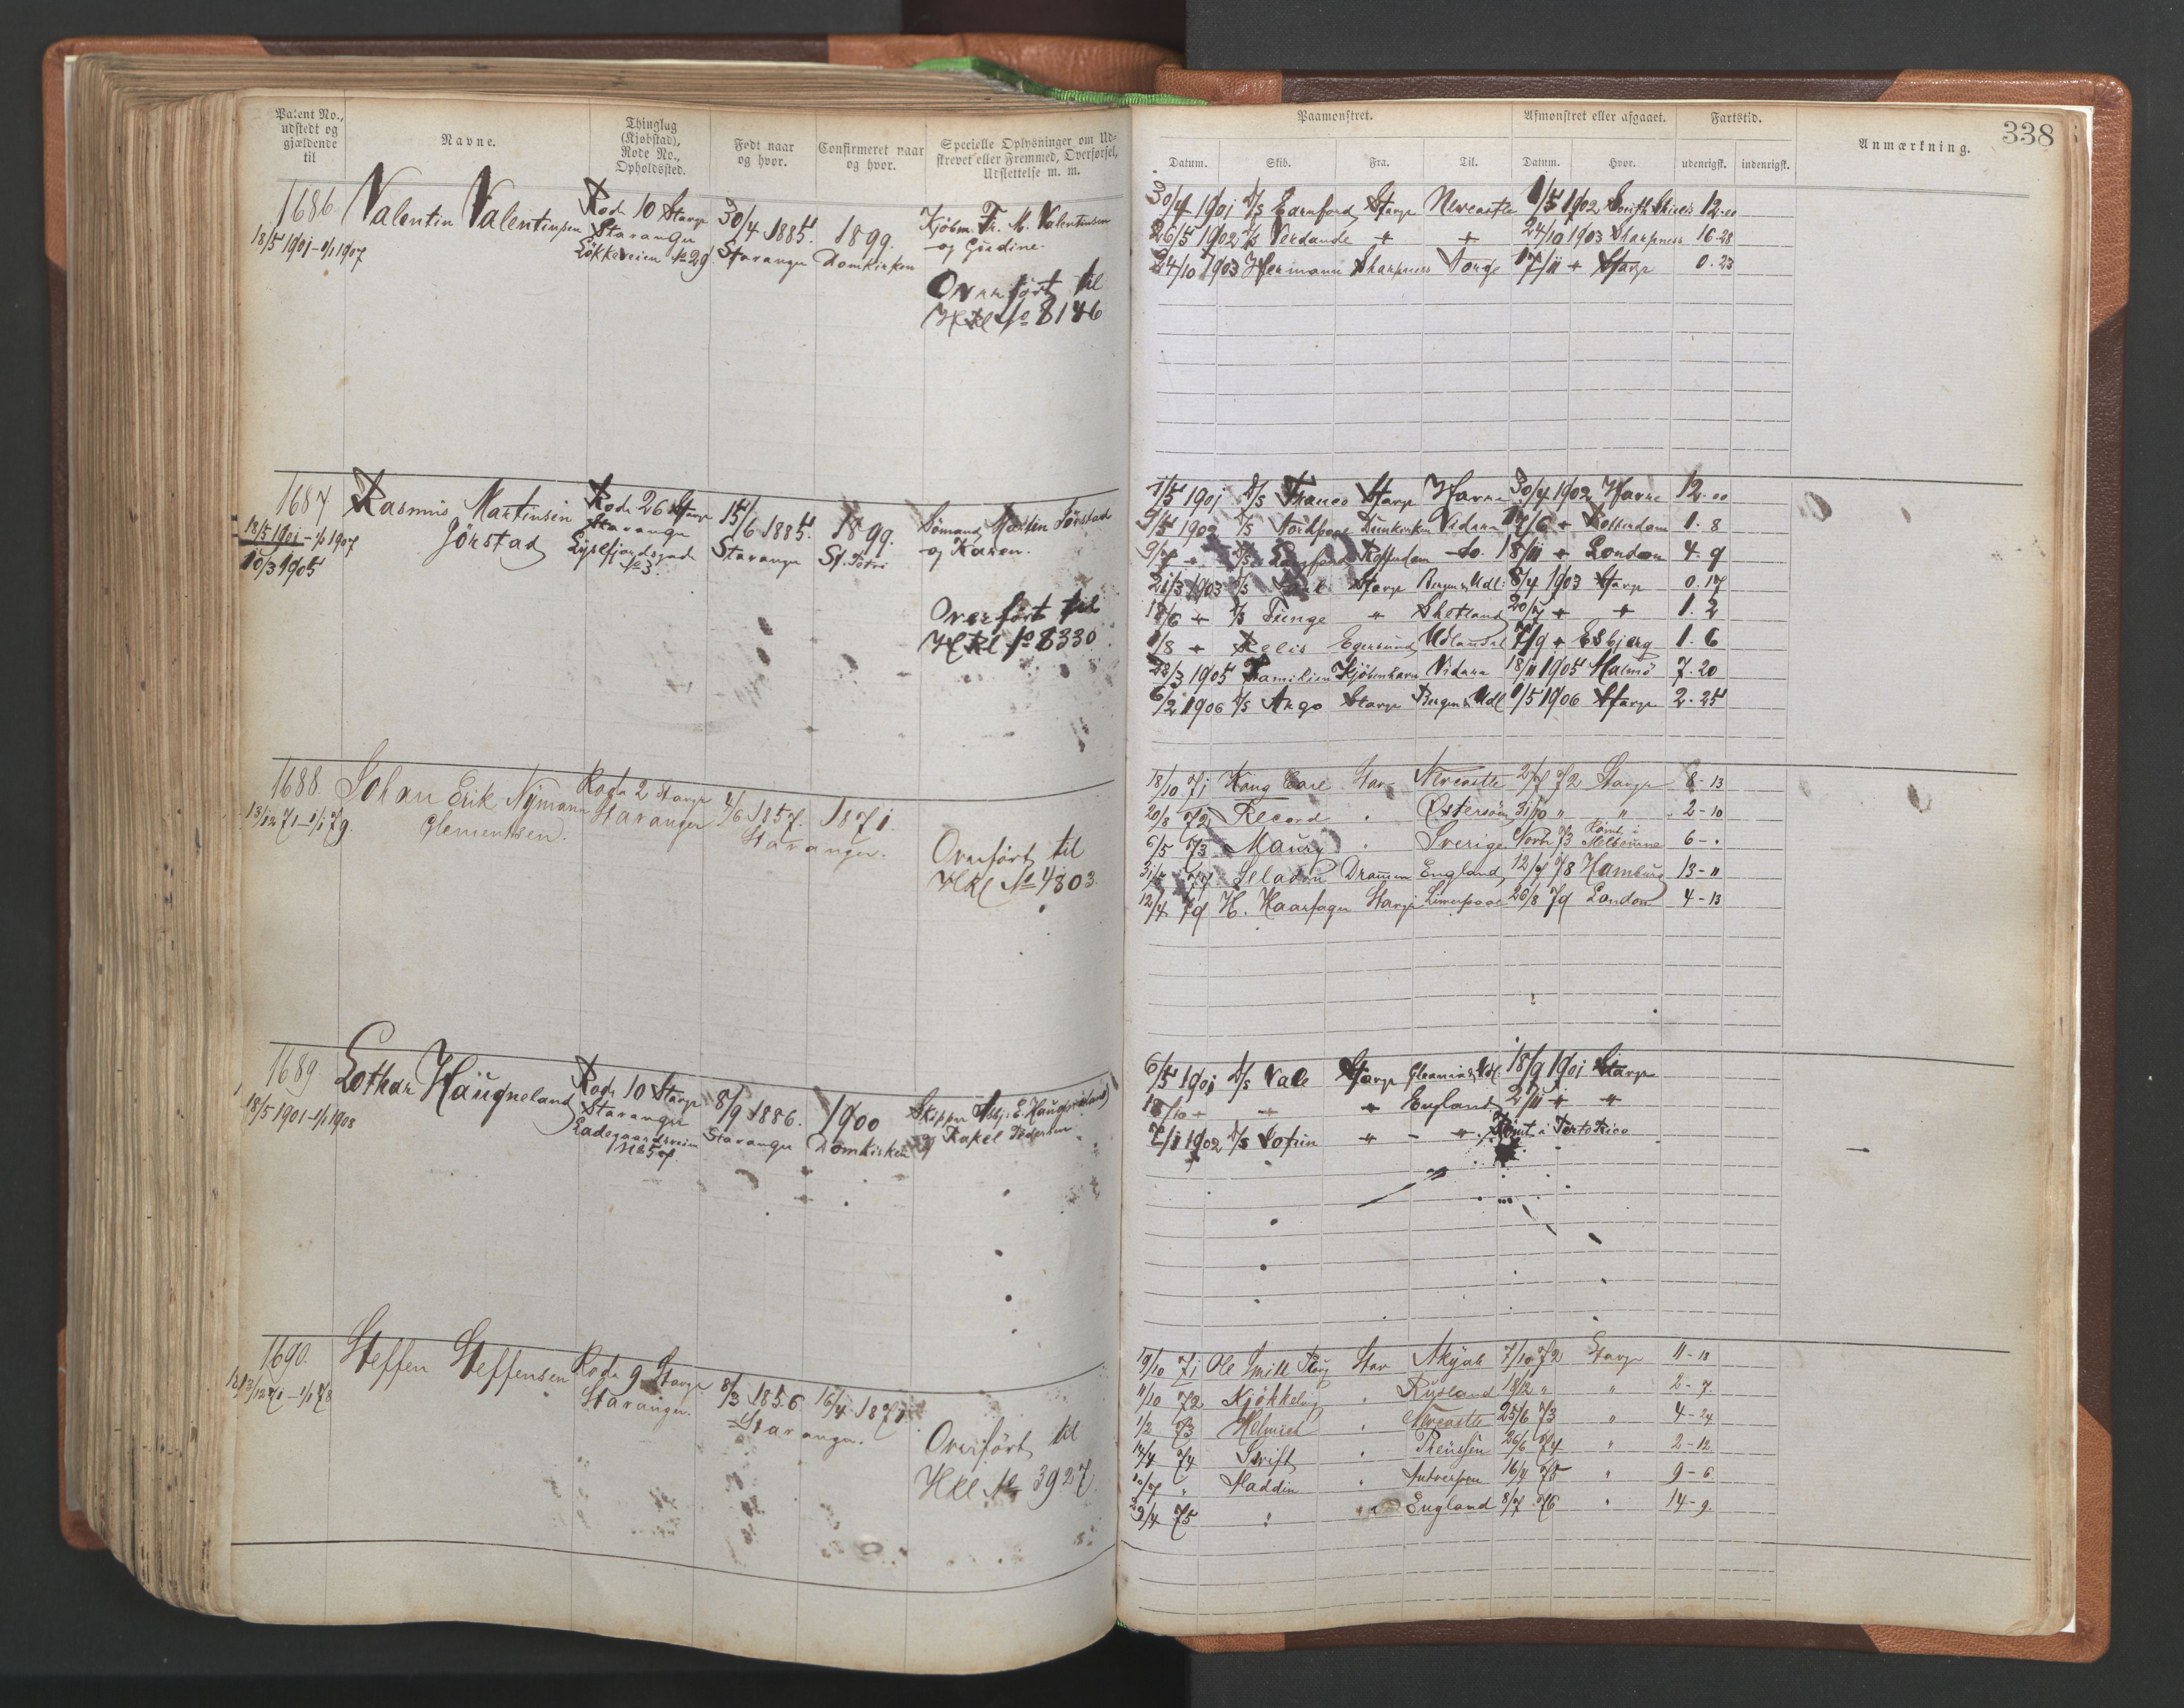 Patent No.,
udstedt og
gjældende
til
Navne.
Thinglag
(Kjøbstad),
Rode No.,
Opholdssted.
Født naar
og hvor.
Confirmeret naar
og hvor.
Specielle Oplysninger om Ud-
skrevet eller Fremmed, Overførsel,
Udslettelse m. m.
1686
18/5 1901 - 1/1 1907
Valentin Valentinsen
Rode 10 Stavgr
Stavanger
Løkkeveien № 29
30/4 1885.
Stavanger
1899.
Domkirken
Kjøbm. Fr. M. Valentinsen
og Gurdine.
Overført til
HRl № 8146
1687
18/5 1901 - 1/1 1907
10/3 1905
Rasmus Martinsen
Jørstad
Rode 26 Stavgr
Stavanger
Lysefjordsgad
№ 3.
15/6 1885.
Stavanger
1899.
St. Petri
Sømand Martin Jørstad
og Karen.
Overført til
HRl № 8330
1688.
13/12 71 - 1/1 79.
Johan Erik Nymann
Clementsen.
Rode 2 Stavgr
Stavanger
4/6 1857.
Stavanger.
1871.
Overført til
HRl № 4803.
1689
18/5 1901 - 1/1 1908
Lothar Haugneland
Rode 10 Stavgr
Stavanger
Ladegaardsveien
№ 57
8/9 1886.
Stavanger
1900
Domkirken
Skipper Asbj. E. Haugneland
og Rakel Pedersen
1690.
13/12 71 - 1/1 78
Steffen Steffensen
Rode 9 Stavgr
Stavanger.
8/3 1856
Stavanger.
16/4 1871.
Overført til
HRl № 3927.
338
Paamønstret.
Afmønstret eller afgaaet.
Fartstid.
Anmærkning.
Datum.
Skib.
Fra.
Til.
Datum.
Hvor.
udenrigsk.
indenrigsk.
30/4 1901 D/S Earnford Stavgr Newcastle 1/5 1902 South Shields 12.00
26/5 1902 D/S Verdande " " 24/10 1903 Sharpness 16.28
24/10 1903 Hermann Sharpness Norge 17/11 " Stavgr 0.23
1/5 1901 D/S Franco Stavgr Havre 30/4 1902 Havre 12.00
9/5 1902 D/S Dunkerken Videre 17/6 " Rotterdam 1.8
9/7 " D/S Rotterdam do. 18/11 " London 4.9
21/3 1903 D/S Stavgr Bergen & Udl. 8/4 1903 Stavgr 0.17
18/6 " D/S Tunge " Shetland 20/7 " " 1.2
1/8 " Relis Egersund Udlandet 7/9 " Esbjerg 1.6
28/3 1905 Familien Kjøbenhavn Videre 18/11 1905 Malmø 7.20
6/2 1906 D/S Argo Stavgr Bergen & Udl 1/5 1906 Stavgr 2.25
18/10 71 Kong Carl Stav. Newcastle 2/7 72 Stavgr 8-13
20/8 72 Record " Østersøen 31/10 " " 2-10
6/5 73 Maury " Sverige Novbr 73 Rømt i Melbourne 6-.
77 Seladon Drammen England 12/7 78 Hamburg 13-"
12/4 79 H. Haarfager Stavgr Liverpool 26/8 79 London 4-13
6/5 1901 D/S Vale Stavgr & Udl. 18/9 1901 Stavgr
18/10 " - " England 2/11 " "
7/1 1902 D/S " - " Rømt i Porto Rico
19/10 71 Ole Smith Ploug Stav Akyab 7/10 72 Stavgr 11-18
11/10 72 Kjøkkelvig " Rusland 18/12 " " 2-7.
1/2 73 Helmich " Newcastle 25/6 73 " 4-24
14/4 74 Swift " Preussen 26/6 74 " 2-12
10/7 " Haddin " Antverpen 16/4 75 " 9-6
29/4 75 " " England 8/7 76 " 14-9.